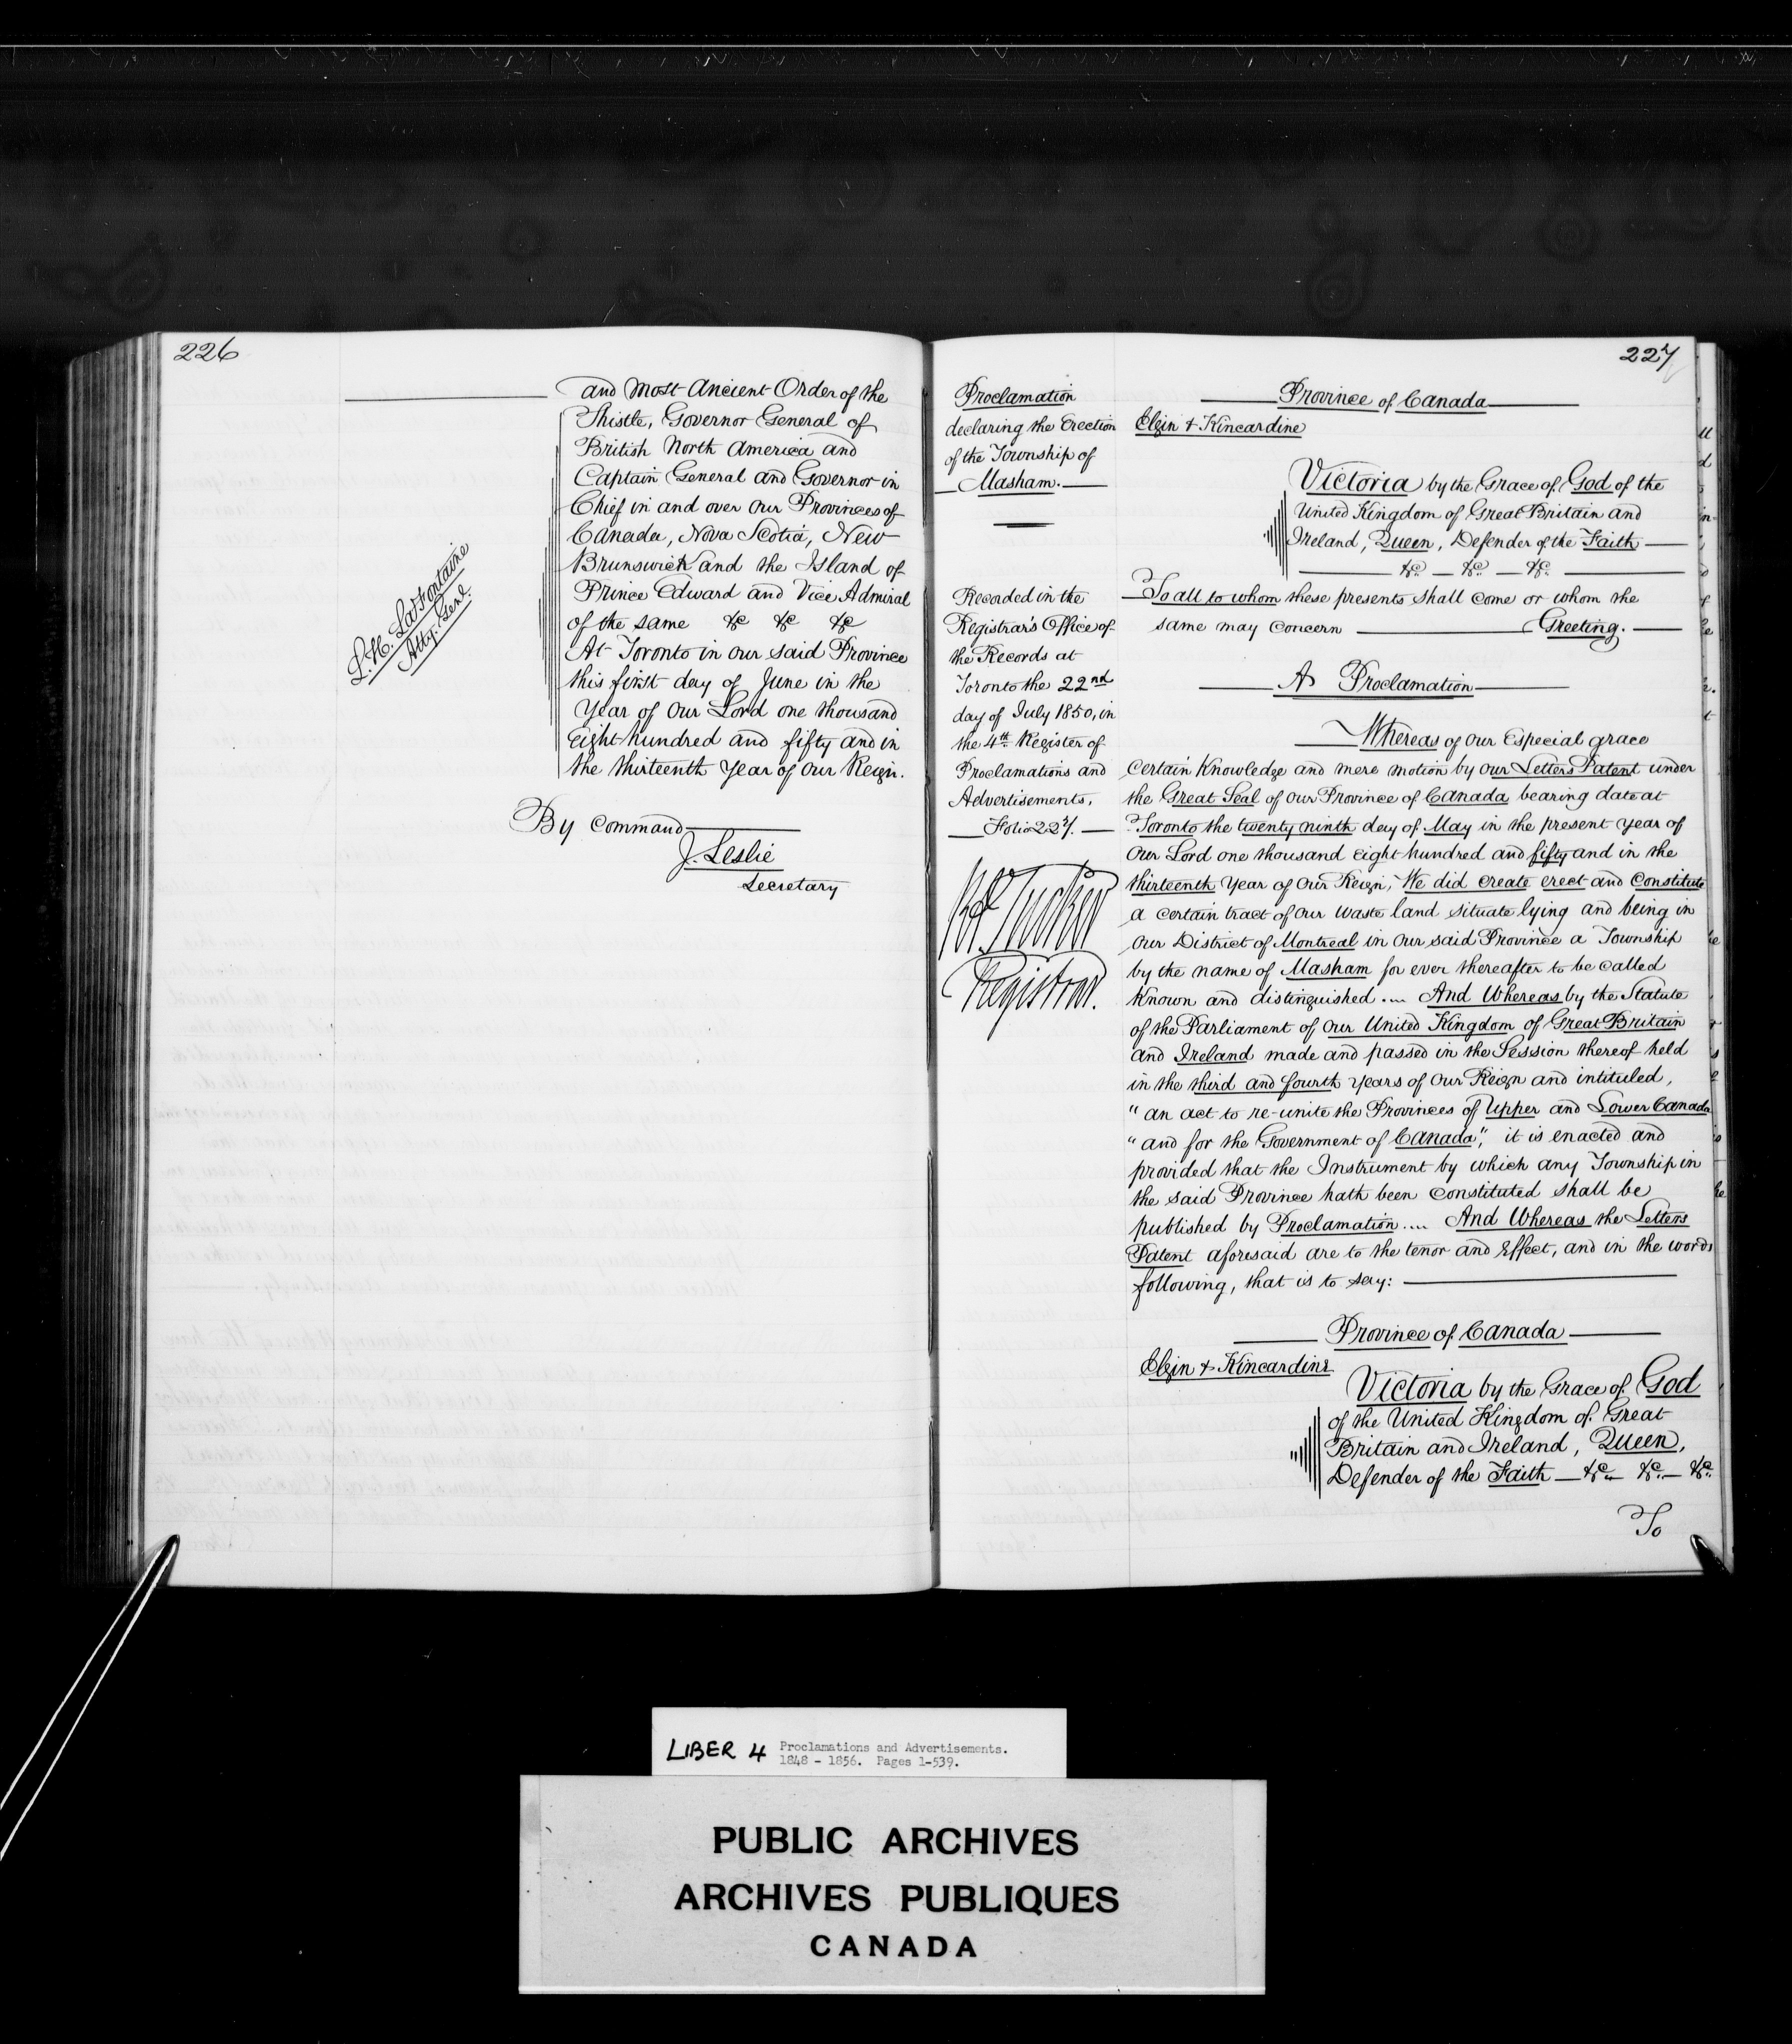 226
and Most Ancient Order of the
Thistle, Governor General of
British North America and
Captain General and Governor in
Chief in and over our Provinces of
Canada, Nova Scotia, New
Brunswick and the Island of
Prince Edward and Vice Admiral
of the same &c &c &c
At Toronto in our said Province
this first day of June in the
Year of Our Lord one thousand
Eight hundred and fifty and in
the thirteenth Year of Our Reign.
L. H. LaFontaine
Atty. Genl.
By Command
J. Leslie
Secretary
227
Proclamation
declaring the Erection
of the Township of
Masham.
Recorded in the
Registrar's Office of
the Records at
Toronto the 22nd
day of July 1850, in
the 4th Register of
Proclamations and
Advertisements,
Folio 227.
Tucker
Registrar.
Province of Canada
Elgin & Kincardine
Victoria by the Grace of God of the
United Kingdom of Great Britain and
Ireland, Queen, Defender of the Faith
&c. — &c. — &c.
To all to whom these presents shall come or whom the
same may concern Greeting.
A Proclamation
Whereas of our Especial grace
certain Knowledge and mere motion by our Letters Patent under
the Great Seal of our Province of Canada bearing date at
Toronto the twenty ninth day of May in the present year of
Our Lord one thousand Eight hundred and fifty and in the
thirteenth Year of Our Reign, We did create erect and Constitute
a certain tract of our waste land situate lying and being in
our District of Montreal in our said Province a Township
by the name of Masham for ever thereafter to be called
Known and distinguished .... And Whereas by the Statute
of the Parliament of our United Kingdom of Great Britain
and Ireland made and passed in the Session thereof held
in the third and fourth years of Our Reign and intituled,
"an act to re-unite the Provinces of Upper and Lower Canada
"and for the Government of Canada", it is enacted and
provided that the Instrument by which any Township in
the said Province hath been Constituted shall be
published by Proclamation .... And Whereas the Letters
Patent aforesaid are to the tenor and Effect, and in the words
following, that is to say:
Province of Canada
Elgin & Kincardine
Victoria by the Grace of God
of the United Kingdom of Great
Britain and Ireland, Queen,
Defender of the Faith — &c. — &c. — &c.
To
LIBER 4 Proclamations and Advertisements.
1848 - 1856. Pages 1-539.
PUBLIC ARCHIVES
ARCHIVES PUBLIQUES
CANADA